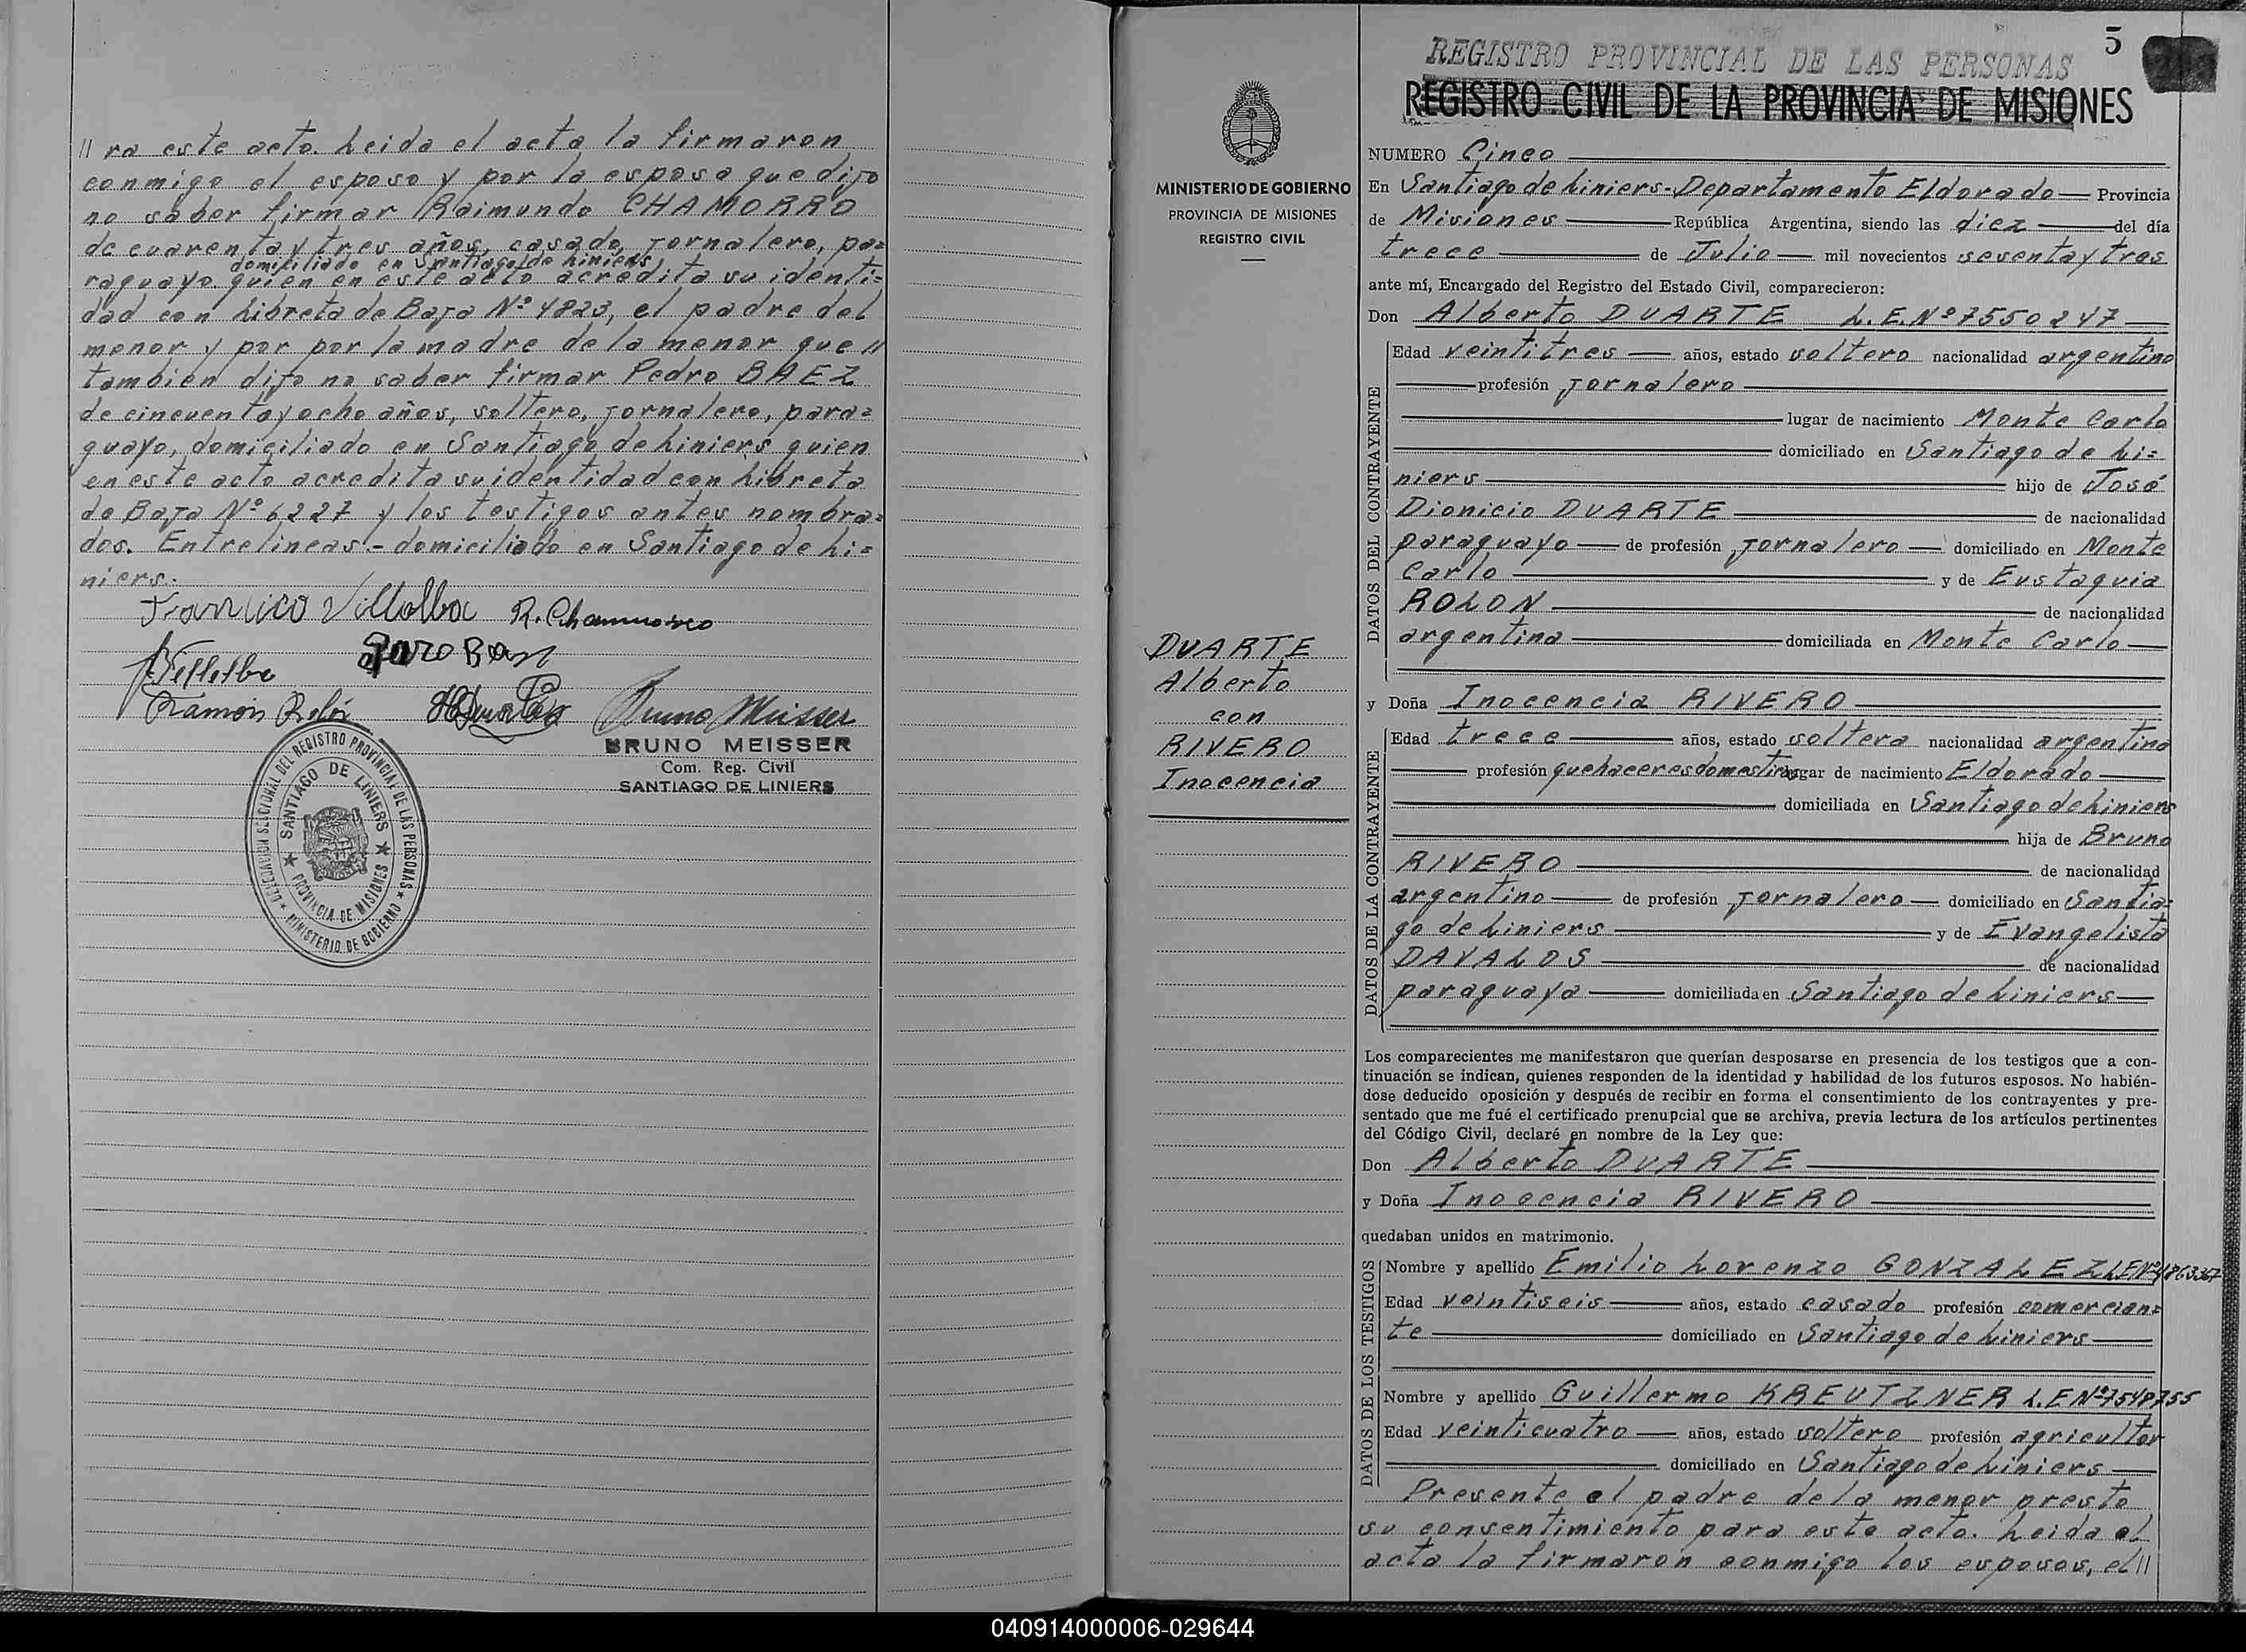 // ra este acto. Leida el acta la firmaron
conmigo el esposo y por la esposa que dijo
no saber firmar Raimundo CHAMORRO
de cuarenta y tres años, casado, jornalero, pa=
domiciliado en Santiago de Liniers
raguayo quien en este acto acredita su identi=
dad con Libreta de Baja Nº 4823, el padre del
menor y por por la madre de la menor que //
tambien dijo no saber firmar Pedro BAEZ
de cincuenta y ocho años, soltero, jornalero, para=
guayo, domiciliado en Santiago de Liniers quien
en este acto acredita su identidad con Libreta
de Baja Nº 6227 y los testigos antes nombra=
dos. Entrelineas.- domiciliado en Santiago de Li=
niers.
Villalba R. Chamorro
Villalba
Ramón Rolón Bruno Meisser
BRUNO MEISSER
Com. Reg. Civil
SANTIAGO DE LINIERS
DELEGACION SECCIONAL DEL REGISTRO PROVINCIAL DE LAS PERSONAS
MINISTERIO DE GOBIERNO
SANTIAGO DE LINIERS
PROVINCIA DE MISIONES
5
REGISTRO PROVINCIAL DE LAS PERSONAS
REGISTRO CIVIL DE LA PROVINCIA DE MISIONES
MINISTERIO DE GOBIERNO
PROVINCIA DE MISIONES
REGISTRO CIVIL
DUARTE
Alberto
con
RIVERO
Inocencia
NUMERO Cinco
En Santiago de Liniers-Departamento Eldorado Provincia
de Misiones República Argentina, siendo las diez del día
trece de Julio mil novecientos sesenta y tres
ante mí, Encargado del Registro del Estado Civil, comparecieron:
Don Alberto DUARTE L.E.Nº 7550247
DATOS DEL CONTRAYENTE
Edad veintitres años, estado soltero nacionalidad argentino
profesión jornalero
lugar de nacimiento Monte Carlo
domiciliado en Santiago de Li=
niers hijo de José
Dionicio DUARTE de nacionalidad
paraguayo de profesión jornalero domiciliado en Monte
Carlo y de Eustaquia
ROLON de nacionalidad
argentina domiciliada en Monte Carlo
y Doña Inocencia RIVERO
DATOS DE LA CONTRAYENTE
Edad trece años, estado soltera nacionalidad argentina
profesión quehaceres domesticos lugar de nacimiento Eldorado
domiciliada en Santiago de Liniers
hija de Bruno
RIVERO de nacionalidad
argentino de profesión jornalero domiciliado en Santia=
go de Liniers y de Evangelista
DAVALOS de nacionalidad
paraguaya domiciliada en Santiago de Liniers
Los comparecientes me manifestaron que querían desposarse en presencia de los testigos que a con-
tinuación se indican, quienes responden de la identidad y habilidad de los futuros esposos. No habién-
dose deducido oposición y después de recibir en forma el consentimiento de los contrayentes y pre-
sentado que me fué el certificado prenupcial que se archiva, previa lectura de los artículos pertinentes
del Código Civil, declaré en nombre de la Ley que:
Don Alberto DUARTE
y Doña Inocencia RIVERO
quedaban unidos en matrimonio.
DATOS DE LOS TESTIGOS
Nombre y apellido Emilio Lorenzo GONZALEZ L.E.Nº
Edad veintiseis años, estado casado profesión comercian=
te domiciliado en Santiago de Liniers
Nombre y apellido Guillermo KREUTZNER L.E Nº 7548755
Edad veinticuatro años, estado soltero profesión agricultor
domiciliado en Santiago de Liniers
Presente el padre de la menor presto
su consentimiento para este acto. Leida el
acta la firmaron conmigo los esposos, el //
040914000006-029644